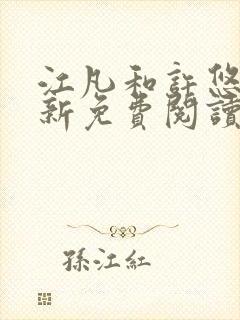 江凡和許悠
新免費閱讀
孫江紅